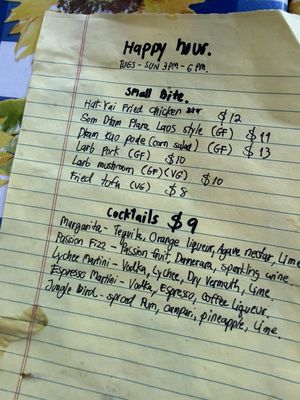 Happy hour.
TUES - SUN 3PM - 6 PM.
Small Bite.
Hat Yai Fried Chicken $12
Som Dtam Plara Laos style (GF) $11
Dtam Kao pode (corn salad) (GF) $13
Larb Pork (GF) $10
Larb mushroom (GF) (VG) $10
Fried tofu (VG) $8
Cocktails $9
Margarita - Tequila, Orange Liqueur, Agave nectar, Lime
Passion Fizz - Passion fruit, Demerara, sparkling wine.
Lychee Martini - Vodka, Lychee, Dry Vermouth, Lime.
Espresso Martini - Vodka, Espresso, Coffee Liqueur.
Jungle Bird - spiced Rum, Campari, pineapple, Lime.